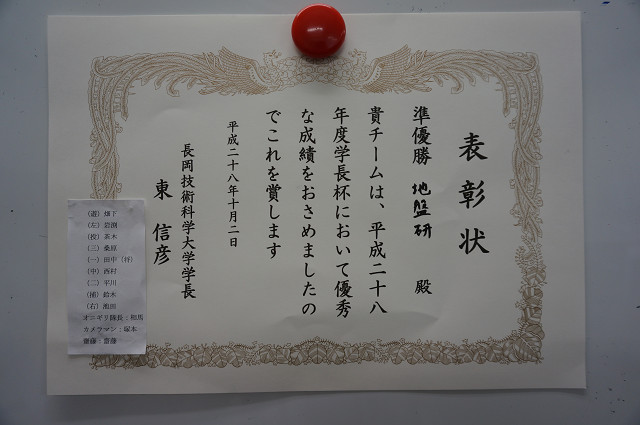 表彰状
準優勝 地盤研 殿
貴チームは、平成二十八
年度学長杯において優秀
な成績をおさめましたの
でこれを賞します
平成二十八年十月二日
長岡技術科学大学学長
東 信彦
(遊) 畑下
(左) 岩渕
(投) 茶木
(三) 桑原
(一) 田中(将)
(中) 西村
(二) 平川
(捕) 鈴木
(右) 池田
オニギリ隊長:相馬
カメラマン:塚本
齋藤:齋藤